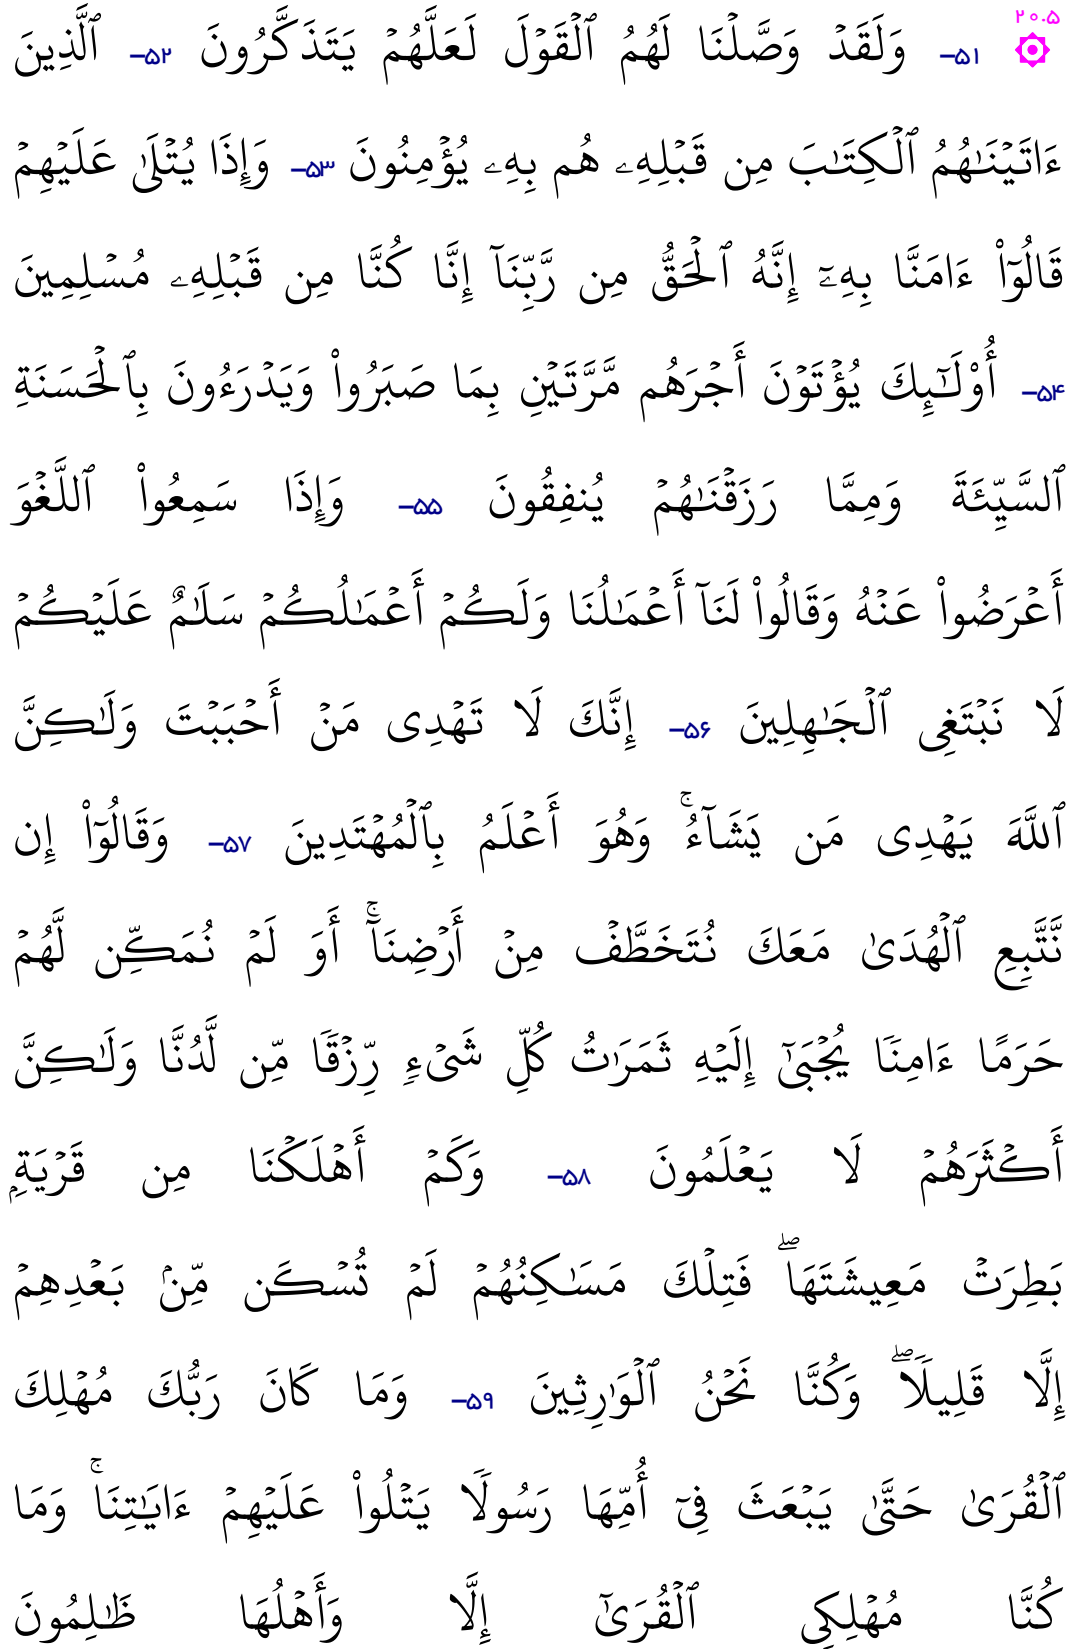 ۲۰.۵
۵۱- وَلَقَدۡ وَصَّلۡنَا لَهُمُ ٱلۡقَوۡلَ لَعَلَّهُمۡ يَتَذَكَّرُونَ ۵۲- ٱلَّذِينَ
ءَاتَيۡنَـٰهُمُ ٱلۡكِتَـٰبَ مِن قَبۡلِهِۦ هُم بِهِۦ يُؤۡمِنُونَ ۵۳- وَإِذَا يُتۡلَىٰ عَلَيۡهِمۡ
قَالُوٓاْ ءَامَنَّا بِهِۦٓ إِنَّهُ ٱلۡحَقُّ مِن رَّبِّنَآ إِنَّا كُنَّا مِن قَبۡلِهِۦ مُسۡلِمِينَ
۵۴- أُوْلَـٰٓئِكَ يُؤۡتَوۡنَ أَجۡرَهُم مَّرَّتَيۡنِ بِمَا صَبَرُواْ وَيَدۡرَءُونَ بِٱلۡحَسَنَةِ
ٱلسَّيِّئَةَ وَمِمَّا رَزَقۡنَـٰهُمۡ يُنفِقُونَ ۵۵- وَإِذَا سَمِعُواْ ٱللَّغۡوَ
أَعۡرَضُواْ عَنۡهُ وَقَالُواْ لَنَآ أَعۡمَـٰلُنَا وَلَكُمۡ أَعۡمَـٰلُكُمۡ سَلَـٰمٌ عَلَيۡكُمۡ
لَا نَبۡتَغِى ٱلۡجَـٰهِلِينَ ۵۶- إِنَّكَ لَا تَهۡدِى مَنۡ أَحۡبَبۡتَ وَلَـٰكِنَّ
ٱللَّهَ يَهۡدِى مَن يَشَآءُۚ وَهُوَ أَعۡلَمُ بِٱلۡمُهۡتَدِينَ ۵۷- وَقَالُوٓاْ إِن
نَّتَّبِعِ ٱلۡهُدَىٰ مَعَكَ نُتَخَطَّفۡ مِنۡ أَرۡضِنَآۚ أَوَ لَمۡ نُمَكِّن لَّهُمۡ
حَرَمًا ءَامِنࣰا يُجۡبَىٰٓ إِلَيۡهِ ثَمَرَٰتُ كُلِّ شَىۡءࣲ رِّزۡقࣰا مِّن لَّدُنَّا وَلَـٰكِنَّ
أَكۡثَرَهُمۡ لَا يَعۡلَمُونَ ۵۸- وَكَمۡ أَهۡلَكۡنَا مِن قَرۡيَةِۭ
بَطِرَتۡ مَعِيشَتَهَاۖ فَتِلۡكَ مَسَـٰكِنُهُمۡ لَمۡ تُسۡكَن مِّنۢ بَعۡدِهِمۡ
إِلَّا قَلِيلࣰاۖ وَكُنَّا نَحۡنُ ٱلۡوَٰرِثِينَ ۵۹- وَمَا كَانَ رَبُّكَ مُهۡلِكَ
ٱلۡقُرَىٰ حَتَّىٰ يَبۡعَثَ فِىٓ أُمِّهَا رَسُولࣰا يَتۡلُواْ عَلَيۡهِمۡ ءَايَـٰتِنَاۚ وَمَا
كُنَّا مُهۡلِكِى ٱلۡقُرَىٰٓ إِلَّا وَأَهۡلُهَا ظَـٰلِمُونَ